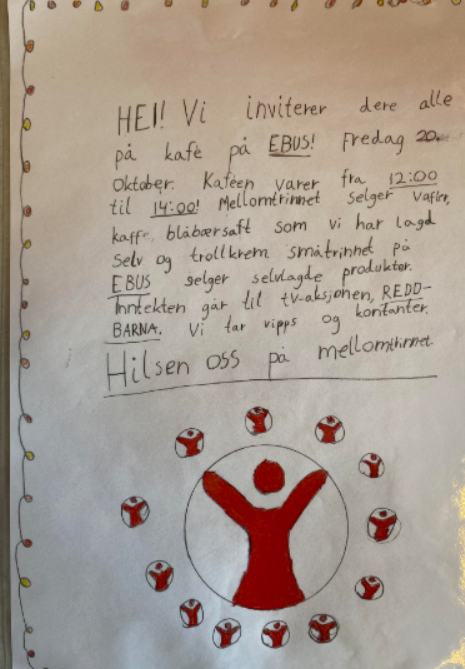 HEI! Vi inviterer dere alle
på kafè på EBUS! Fredag 20.
Oktober. Kafèen varer fra 12:00
til 14:00! Mellomtrinnet selger vafler,
kaffe, blåbærsaft som vi har lagd
selv og trollkrem. småtrinnet på
EBUS selger selvlagde produkter.
Inntekten går til tv-aksjonen, REDD-
BARNA. Vi tar vipps og kontanter.
Hilsen oss på mellomtrinnet.